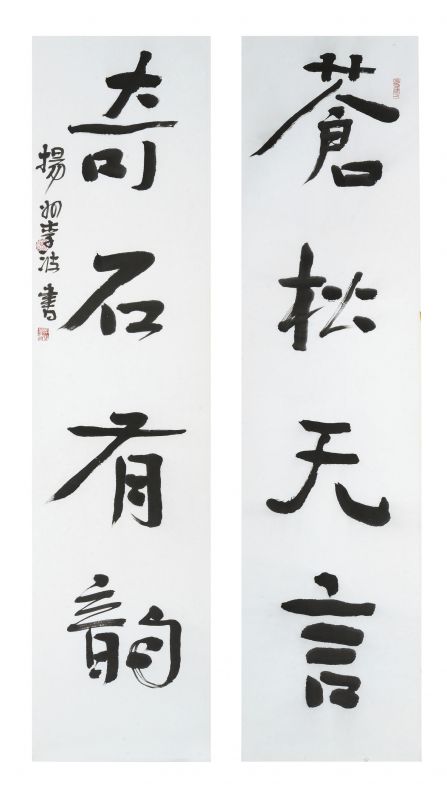 蒼松无言
奇石有韵
揚州李波書